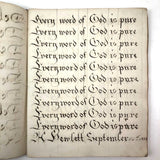 Every word of God is pure
Every word of God is pure
Every word of God is pure
Every word of God is pure
Every word of God is pure
Every word of God is pure
Every word of God is pure
Every word of God is pure
Every word of God is pure
R Hewlett September